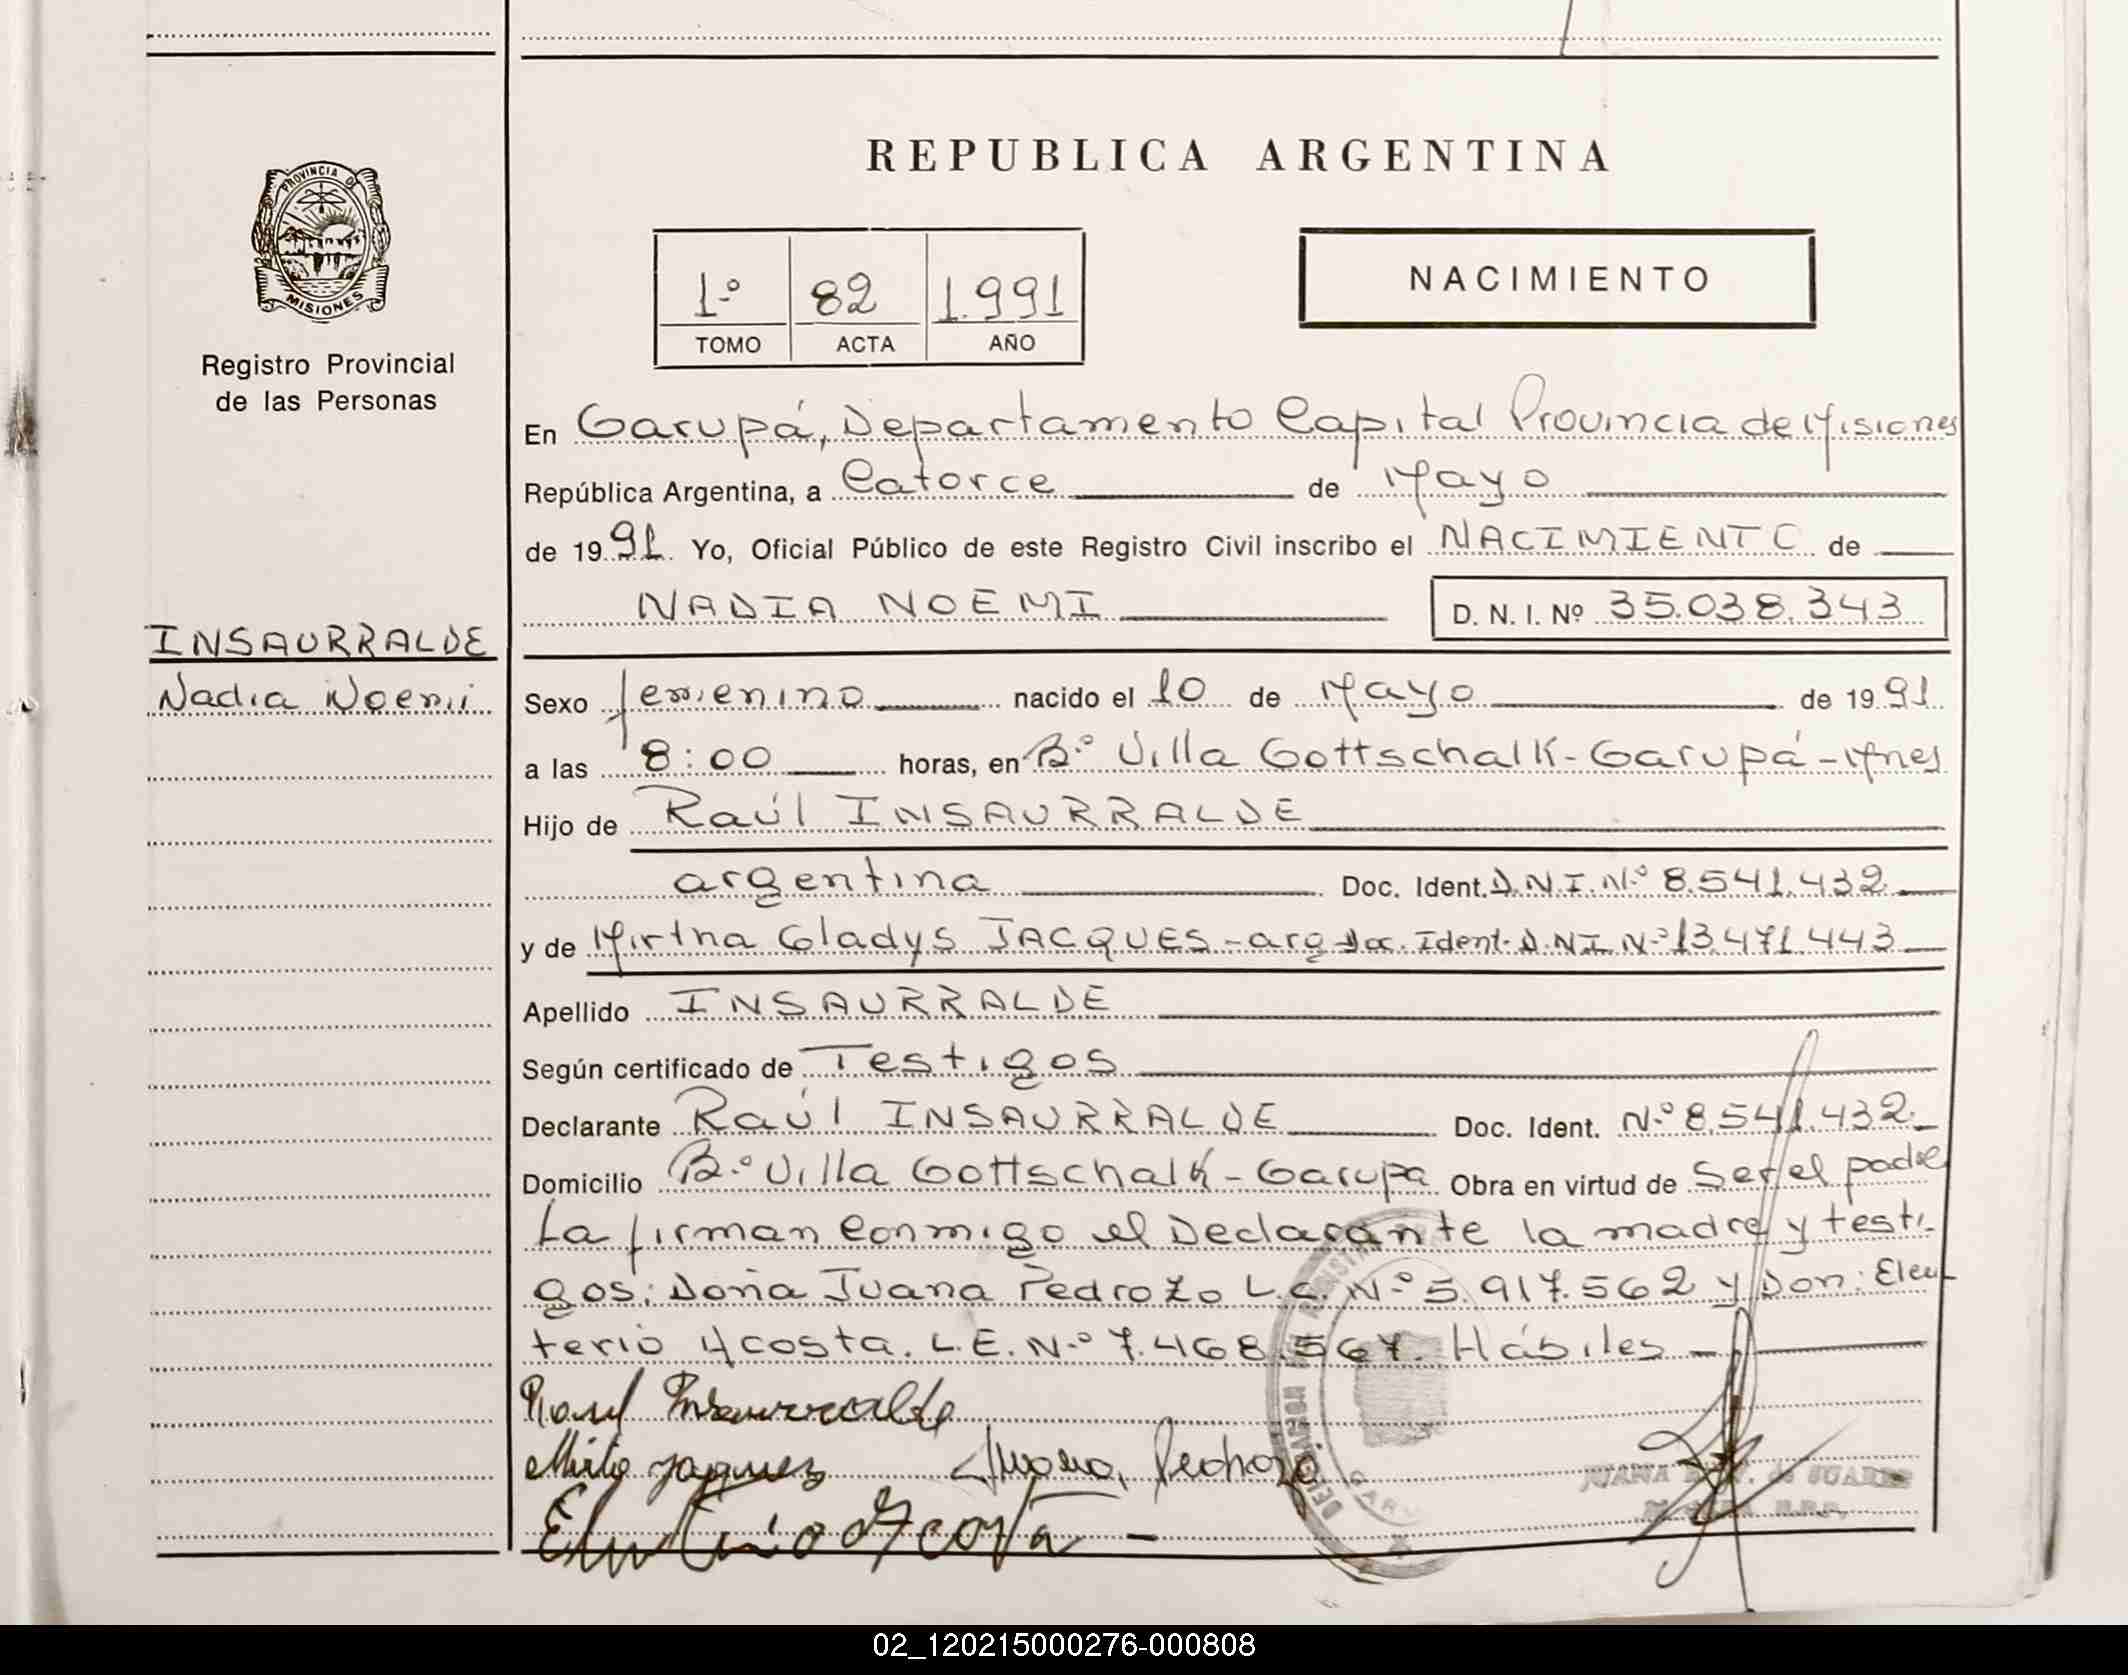 REPUBLICA ARGENTINA
PROVINCIA DE MISIONES
Registro Provincial
de las Personas
1º 82 1.991
TOMO ACTA AÑO
NACIMIENTO
En Garupá, Departamento Capital Provincia de Misiones
República Argentina, a Catorce de Mayo
de 1991. Yo, Oficial Público de este Registro Civil inscribo el NACIMIENTO de
NADIA NOEMI D. N. I. Nº 35.038.343
INSAURRALDE
Nadia Noemi
Sexo femenino nacido el 10 de Mayo de 1991
a las 8:00 horas, en Bº Villa Gottschalk-Garupá-Mnes
Hijo de Raúl INSAURRALDE
argentina Doc. Ident. D.N.I.Nº 8.541.432
y de Mirtha Gladys JACQUES-arg Doc. Ident. D.N.I Nº 13.471.443
Apellido INSAURRALDE
Según certificado de Testigos
Declarante Raúl INSAURRALDE Doc. Ident. Nº 8.541.432
Domicilio Bº Villa Gottschalk-Garupa Obra en virtud de Ser el padre
La firman Conmigo el Declarante la madre y testi-
gos: Doña Juana Pedrozo L.C. Nº 5.917.562 y Don: Eleu-
terio Acosta. L.E. Nº 7.468.567. Hábiles
Raul Insaurralde
Mirta Jaquez Juana Pedrozo
Eleuterio Acosta
JUANA SUAREZ
02_120215000276-000808